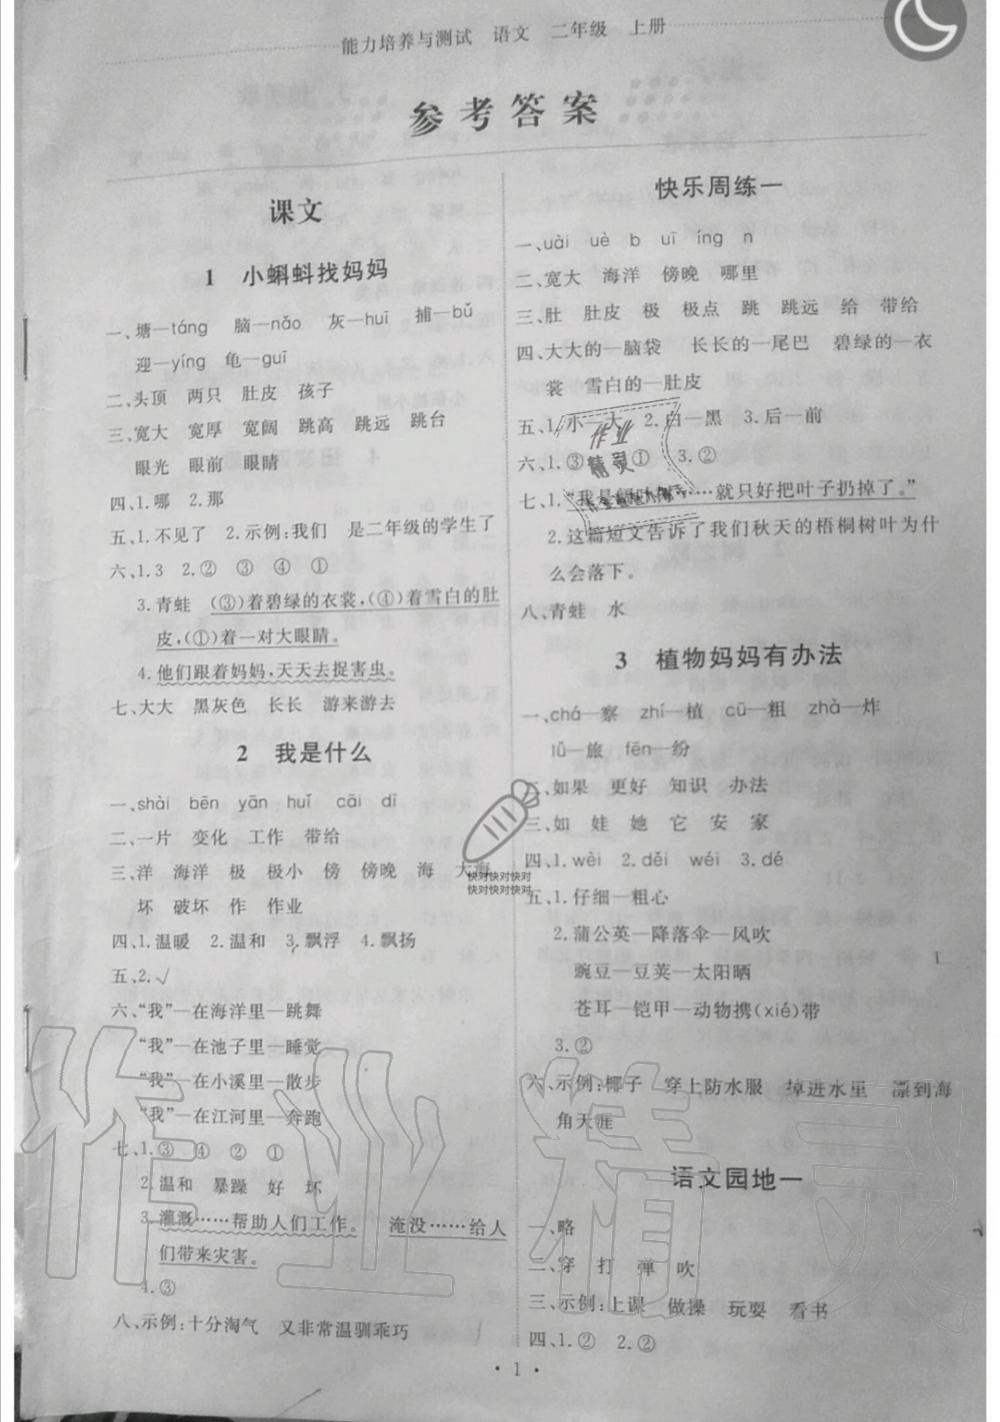 能力培养与测试 语文 二年级 上册
参考答案
课文
1 小蝌蚪找妈妈
一、塘—táng 脑—nǎo 灰—huī 捕—bǔ
迎—yíng 龟—guī
二、头顶 两只 肚皮 孩子
三、宽大 宽厚 宽阔 跳高 跳远 跳台
眼光 眼前 眼睛
四、1.哪 2.那
五、1.不见了 2.示例:我们 是二年级的学生了
六、1.3 2.② ③ ④ ①
3.青蛙 (③)着碧绿的衣裳,(④)着雪白的肚
皮,(①)着一对大眼睛。
4.他们跟着妈妈,天天去捉害虫。
七、大大 黑灰色 长长 游来游去
2 我是什么
一、shài bēn yān huǐ cāi dī
二、一片 变化 工作 带给
三、洋 海洋 极 极小 傍 傍晚 海 大海
坏 破坏 作 作业
四、1.温暖 2.温和 3.飘浮 4.飘扬
五、2.√
六、“我”—在海洋里—跳舞
“我”—在池子里—睡觉
“我”—在小溪里—散步
“我”—在江河里—奔跑
七、1.③ ④ ② ①
2.温和 暴躁 好 坏
3.灌溉……帮助人们工作。 淹没……给人
们带来灾害。
4.③
八、示例:十分淘气 又非常温驯乖巧
快乐周练一
一、uài uè b uī íng n
二、宽大 海洋 傍晚 哪里
三、肚 肚皮 极 极点 跳 跳远 给 带给
四、大大的—脑袋 长长的—尾巴 碧绿的—衣
裳 雪白的—肚皮
五、1.小—大 2.白—黑 3.后—前
六、1.③ ① 3.②
七、1.“我是……就只好把叶子扔掉了。”
2.这篇短文告诉了我们秋天的梧桐树叶为什
么会落下。
八、青蛙 水
3 植物妈妈有办法
一、chá—察 zhí—植 cū—粗 zhà—炸
lǚ—旅 fēn—纷
二、如果 更好 知识 办法
三、如 娃 她 它 安 家
四、1.wèi 2.děi wéi 3.dé
五、1.仔细—粗心
2.蒲公英—降落伞—风吹
豌豆—豆荚—太阳晒
苍耳—铠甲—动物携(xié)带
3.②
六、示例:椰子 穿上防水服 掉进水里 漂到海
角天涯
语文园地一
一、略
二、穿 打 弹 吹
三、示例:上课 做操 玩耍 看书
四、1.② 2.②
· 1 ·
作业
精灵
快对快对快对
快对快对快对
作业精灵